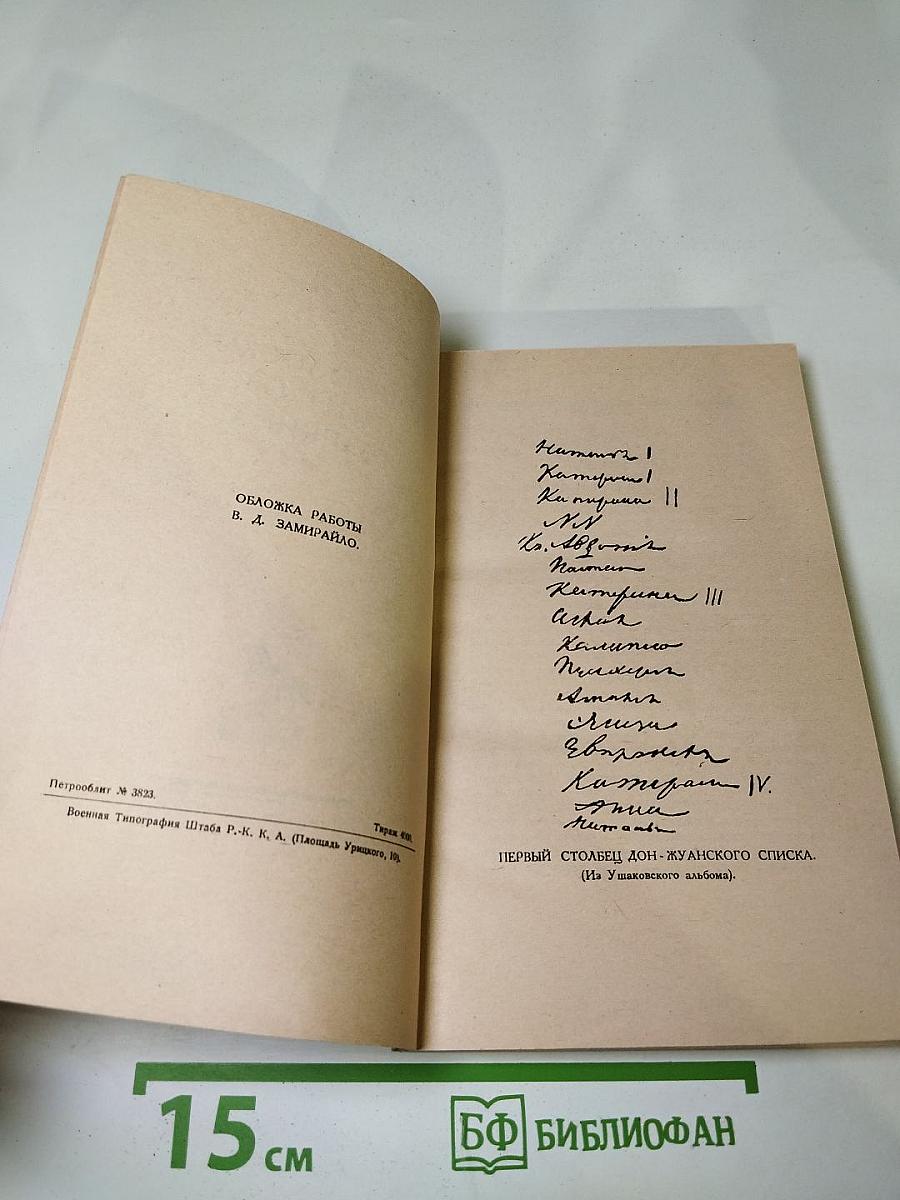 ОБЛОЖКА РАБОТЫ
В. Д. ЗАМИРАЙЛО.
Петрооблит № 3823.
Тираж 4000.
Военная Типография Штаба Р.-К. К. А. (Площадь Урицкого, 10).
Наталья I
Катерина I
Катерина II
NN
Кн. Авдотия
Настасья
Катерина III
Аглая
Калипсо
Пульхерия
Амалия
Элиза
Евпраксея
Катерина IV.
Анна
Наталья
ПЕРВЫЙ СТОЛБЕЦ ДОН-ЖУАНСКОГО СПИСКА.
(Из Ушаковского альбома).
15 см
БФ БИБЛИОФАН